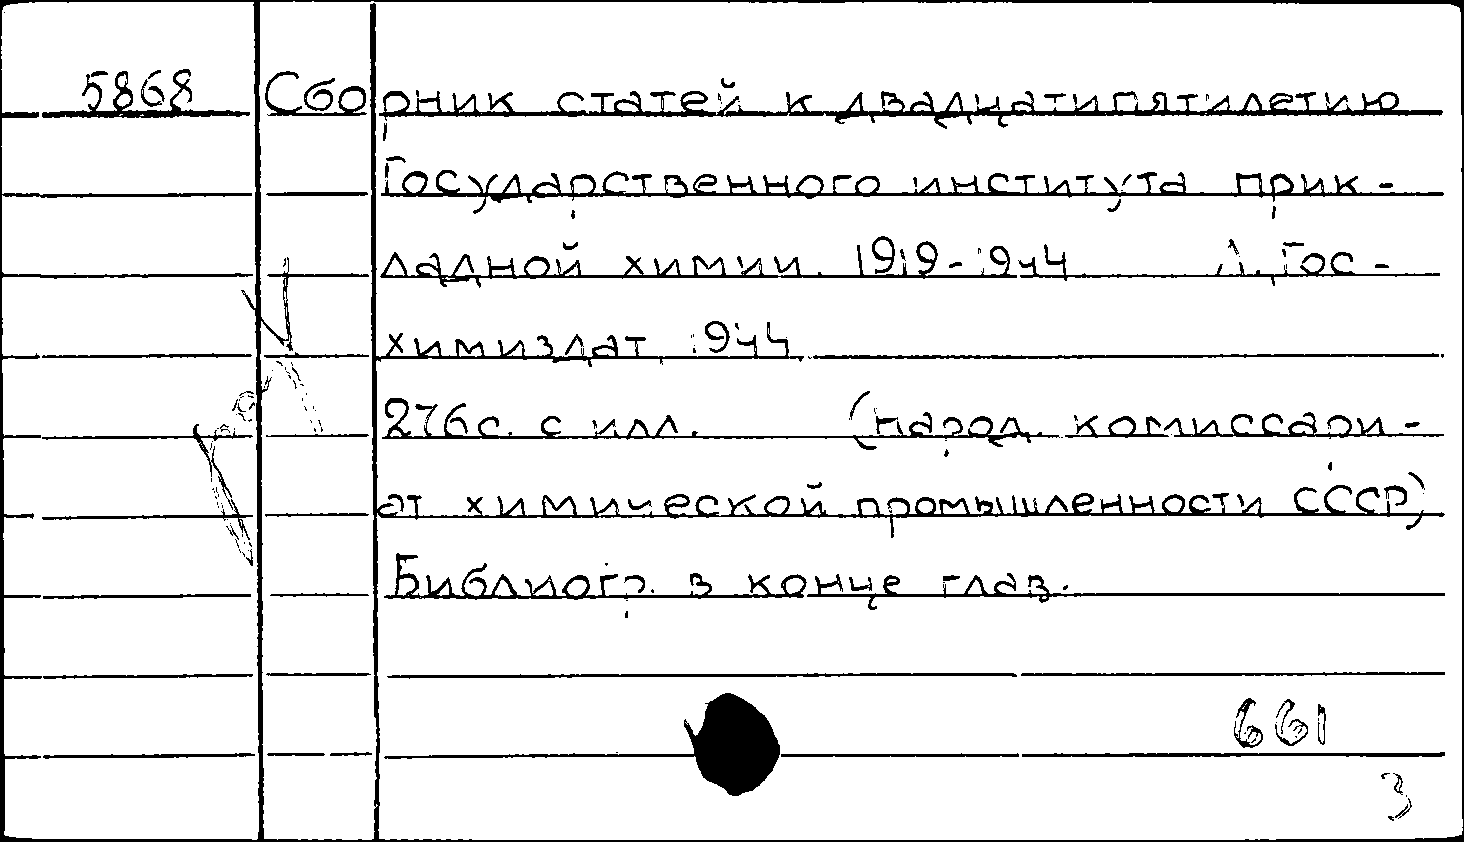 5868 Сборник статей к двадцатипятилетию
Государственного института прик-
ладной химии. 1919-1944 Л., Гос-
химиздат, 1944.
276с. с илл. (народ. комиссари-
ат химической промышленности СССР)
Библиогр. в конце глав.
661
3